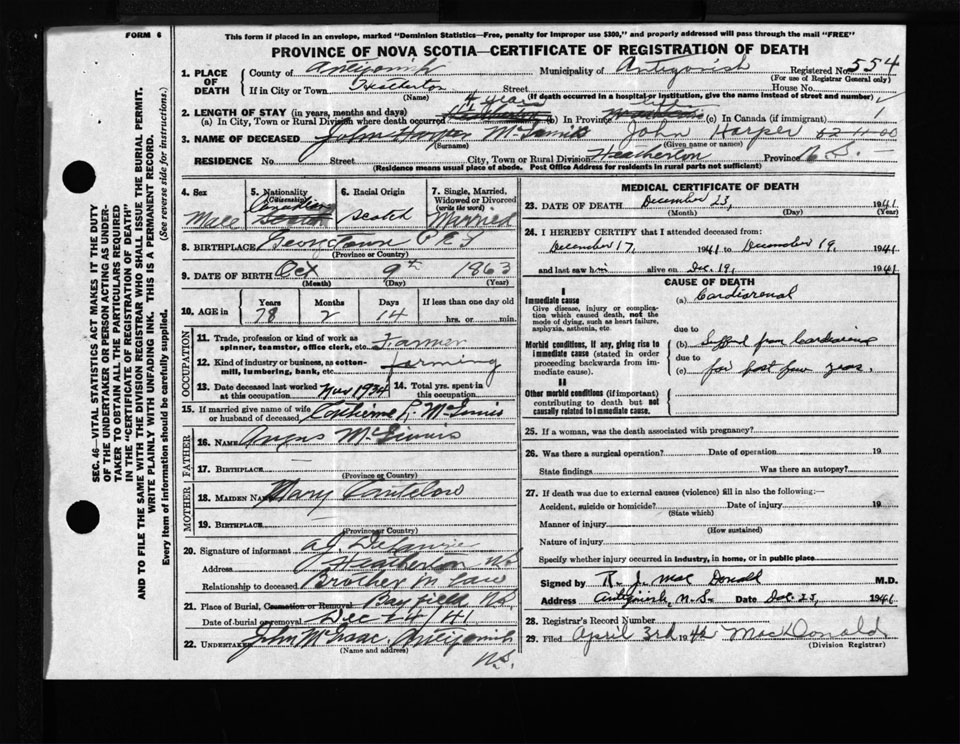 FORM 6
This form if placed in an envelope, marked "Dominion Statistics—Free, penalty for improper use $300," and properly addressed will pass through the mail "FREE"
PROVINCE OF NOVA SCOTIA—CERTIFICATE OF REGISTRATION OF DEATH
1. PLACE OF DEATH
County of Antigonish Municipality of Antigonish Registered No. 554
(For use of Registrar General only)
If in City or Town Heatherton Street House No.
(Name) (If death occurred in a hospital or institution, give the name instead of street and number)
2. LENGTH OF STAY (in years, months and days)
(a) In City, Town or Rural Division where death occurred (b) In Province (c) In Canada (if immigrant)
3. NAME OF DECEASED McGinnis John Harper
(Surname) (Given name or names)
RESIDENCE No. Street City, Town or Rural Division Heatherton Province N.S.
(Residence means usual place of abode. Post Office Address for residents in rural parts not sufficient)
4. Sex Male
5. Nationality (Citizenship) Canadian
6. Racial Origin Scotch
7. Single, Married, Widowed or Divorced (write the word) Married
8. BIRTHPLACE Georgetown P E I
(Province or Country)
9. DATE OF BIRTH Oct 9th 1863
(Month) (Day) (Year)
10. AGE in Years 78 Months 2 Days 14 If less than one day old hrs. or min.
OCCUPATION
11. Trade, profession or kind of work as spinner, teamster, office clerk, etc. Farmer
12. Kind of industry or business, as cotton-mill, lumbering, bank, etc. Farming
13. Date deceased last worked at this occupation 1934
14. Total yrs. spent in this occupation
15. If married give name of wife or husband of deceased Catherine McGinnis
FATHER
16. NAME Angus McGinnis
17. BIRTHPLACE
(Province or Country)
MOTHER
18. MAIDEN NAME Mary
19. BIRTHPLACE
(Province or Country)
20. Signature of informant
Address Heatherton NS
Relationship to deceased Brother in law
21. Place of Burial, Cremation or Removal Bayfield NS
Date of burial or removal Dec 24/41
22. UNDERTAKER John McIsaac, Antigonish N.S.
(Name and address)
MEDICAL CERTIFICATE OF DEATH
23. DATE OF DEATH December 23, 1941
(Month) (Day) (Year)
24. I HEREBY CERTIFY that I attended deceased from:
December 17, 1941 to December 19, 1941
and last saw him alive on Dec. 19, 1941
CAUSE OF DEATH
I
Immediate cause
Give disease, injury or complication which caused death, not the mode of dying, such as heart failure, asphyxia, asthenia, etc.
(a) Cardiorenal
due to
Morbid conditions, if any, giving rise to immediate cause (stated in order proceeding backwards from immediate cause).
(b) Suffered from Cardiorenal
due to
(c) for past few years.
II
Other morbid conditions (if important) contributing to death but not causally related to immediate cause.
25. If a woman, was the death associated with pregnancy?
26. Was there a surgical operation? Date of operation 19
State findings Was there an autopsy?
27. If death was due to external causes (violence) fill in also the following:—
Accident, suicide or homicide? Date of injury 19
(State which)
Manner of injury
(How sustained)
Nature of injury
Specify whether injury occurred in industry, in home, or in public place
Signed by R. J. MacDonald M.D.
Address Antigonish, N.S. Date Dec. 23, 1941
28. Registrar's Record Number
29. Filed April 3rd 194 MacDonald
(Division Registrar)
SEC. 46—VITAL STATISTICS ACT MAKES IT THE DUTY
OF THE UNDERTAKER OR PERSON ACTING AS UNDER-
TAKER TO OBTAIN ALL THE PARTICULARS REQUIRED
IN THE "CERTIFICATE OF REGISTRATION OF DEATH"
AND TO FILE THE SAME WITH THE DIVISION REGISTRAR WHO SHALL ISSUE THE BURIAL PERMIT.
WRITE PLAINLY WITH UNFADING INK. THIS IS A PERMANENT RECORD.
Every item of information should be carefully supplied. (See reverse side for instructions.)